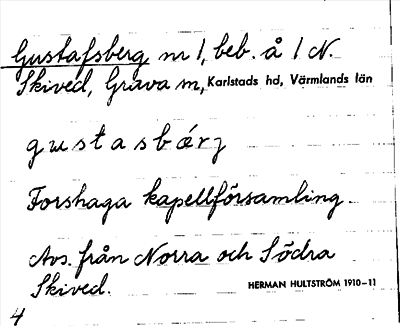 Gustafsberg nr 1, beb. å 1 N.
Skived, Grava sn, Karlstads hd, Värmlands län
gustasbærj
Forshaga kapellförsamling.
Avs. från Norra och Södra
Skived.
HERMAN HULTSTRÖM 1910-11
4